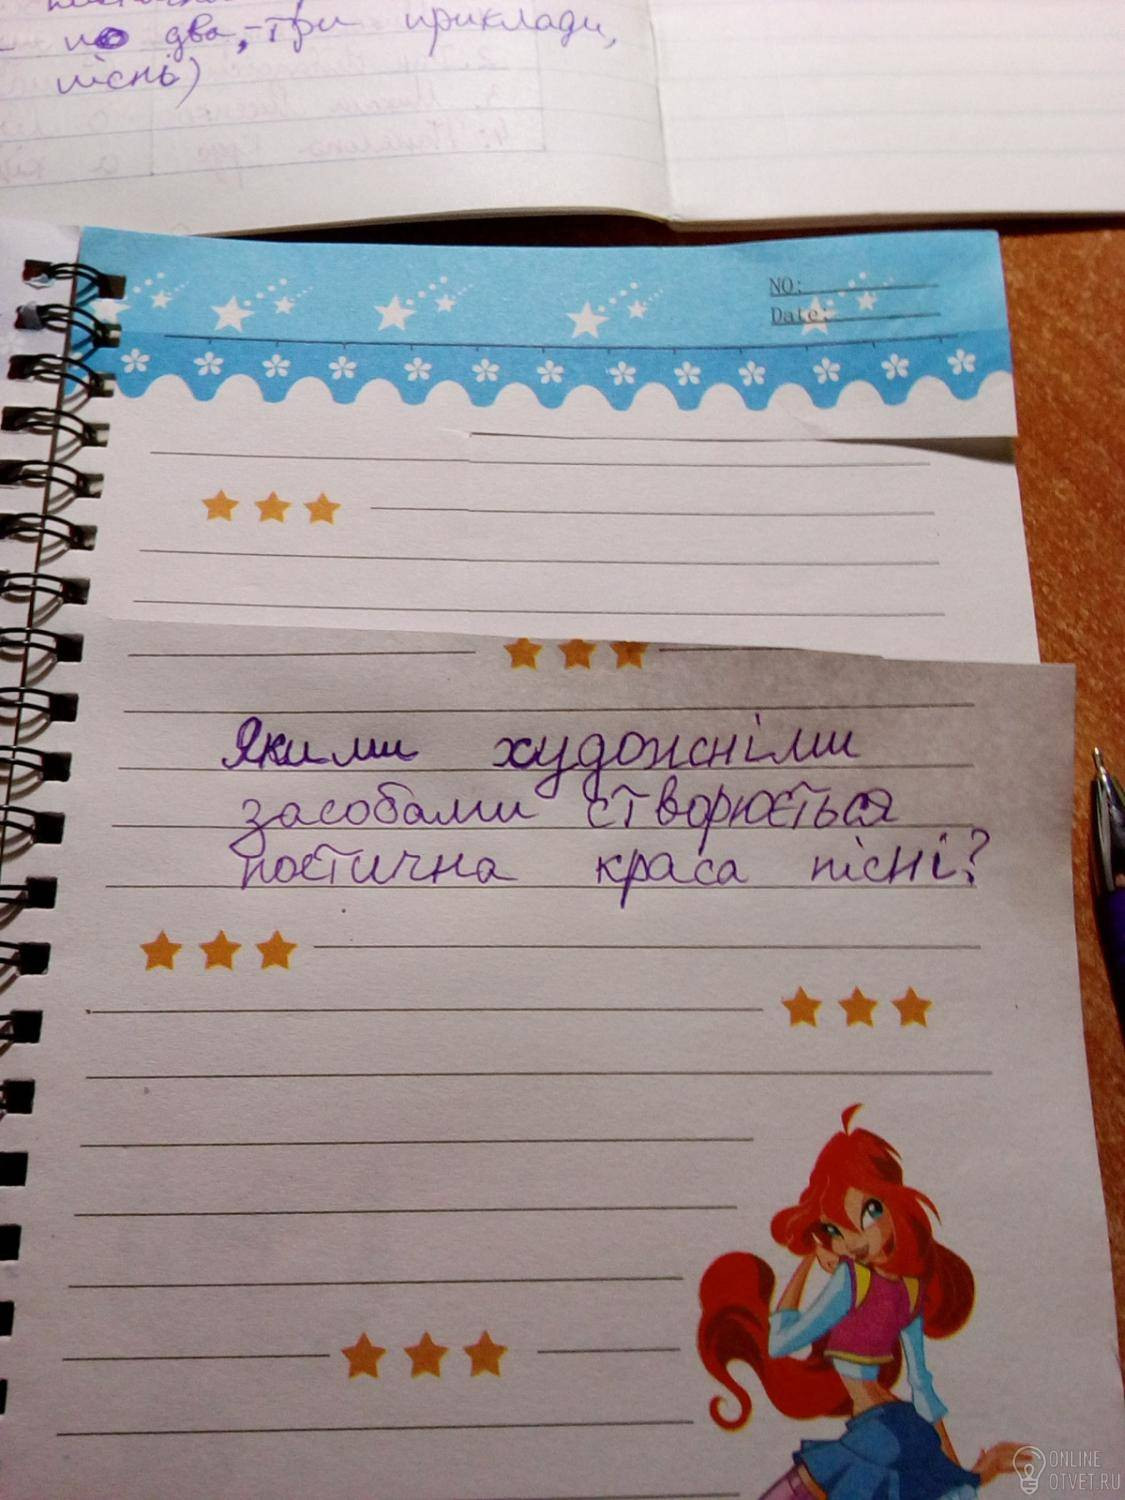 по два, три приклади,
пісні)
NO:
Date:
Якими художніми
засобами створюється
поетична краса пісні?
ONLINE
OTVET.RU